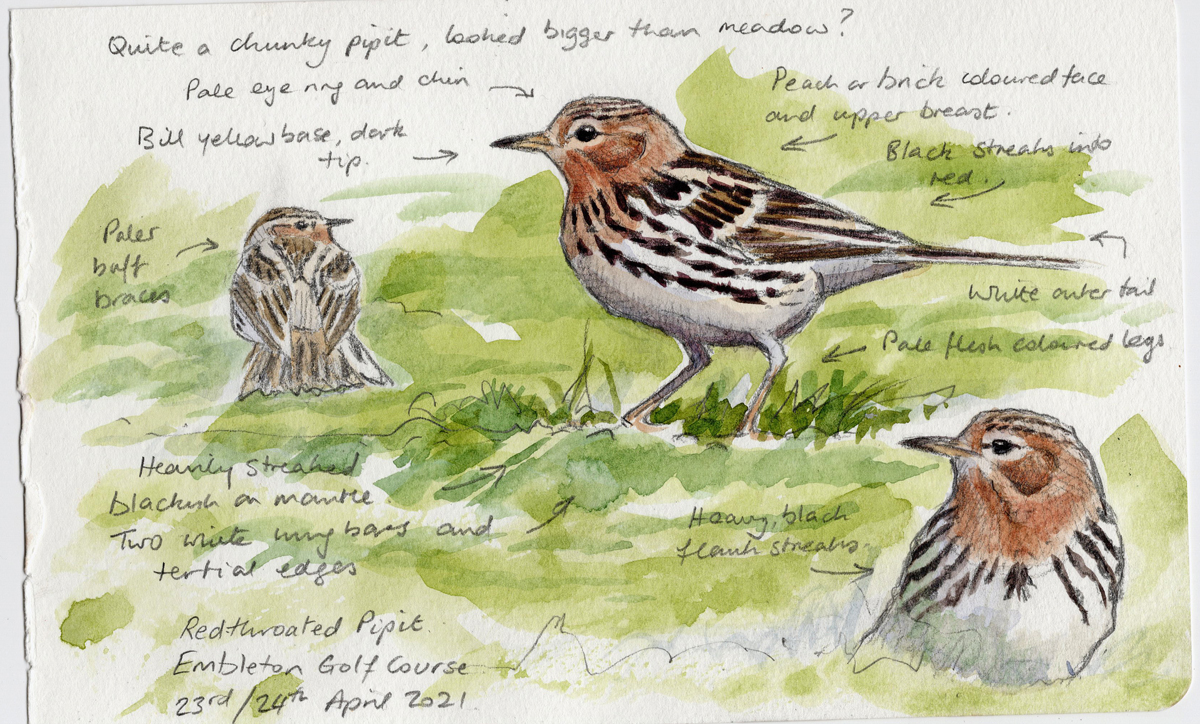 Quite a chunky pipit, looked bigger than meadow?
Pale eye ring and chin
Bill yellow base, dark
tip.
Peach or brick coloured face
and upper breast.
Black streaks into
red.
Paler
buff
braces
White outer tail
Pale flesh coloured legs
Heavily streaked
blackish on mantle.
Two white wing bars and
tertial edges
Heavy, black
flank streaks.
Redthroated Pipit.
Embleton Golf Course
23rd/24th April 2021.